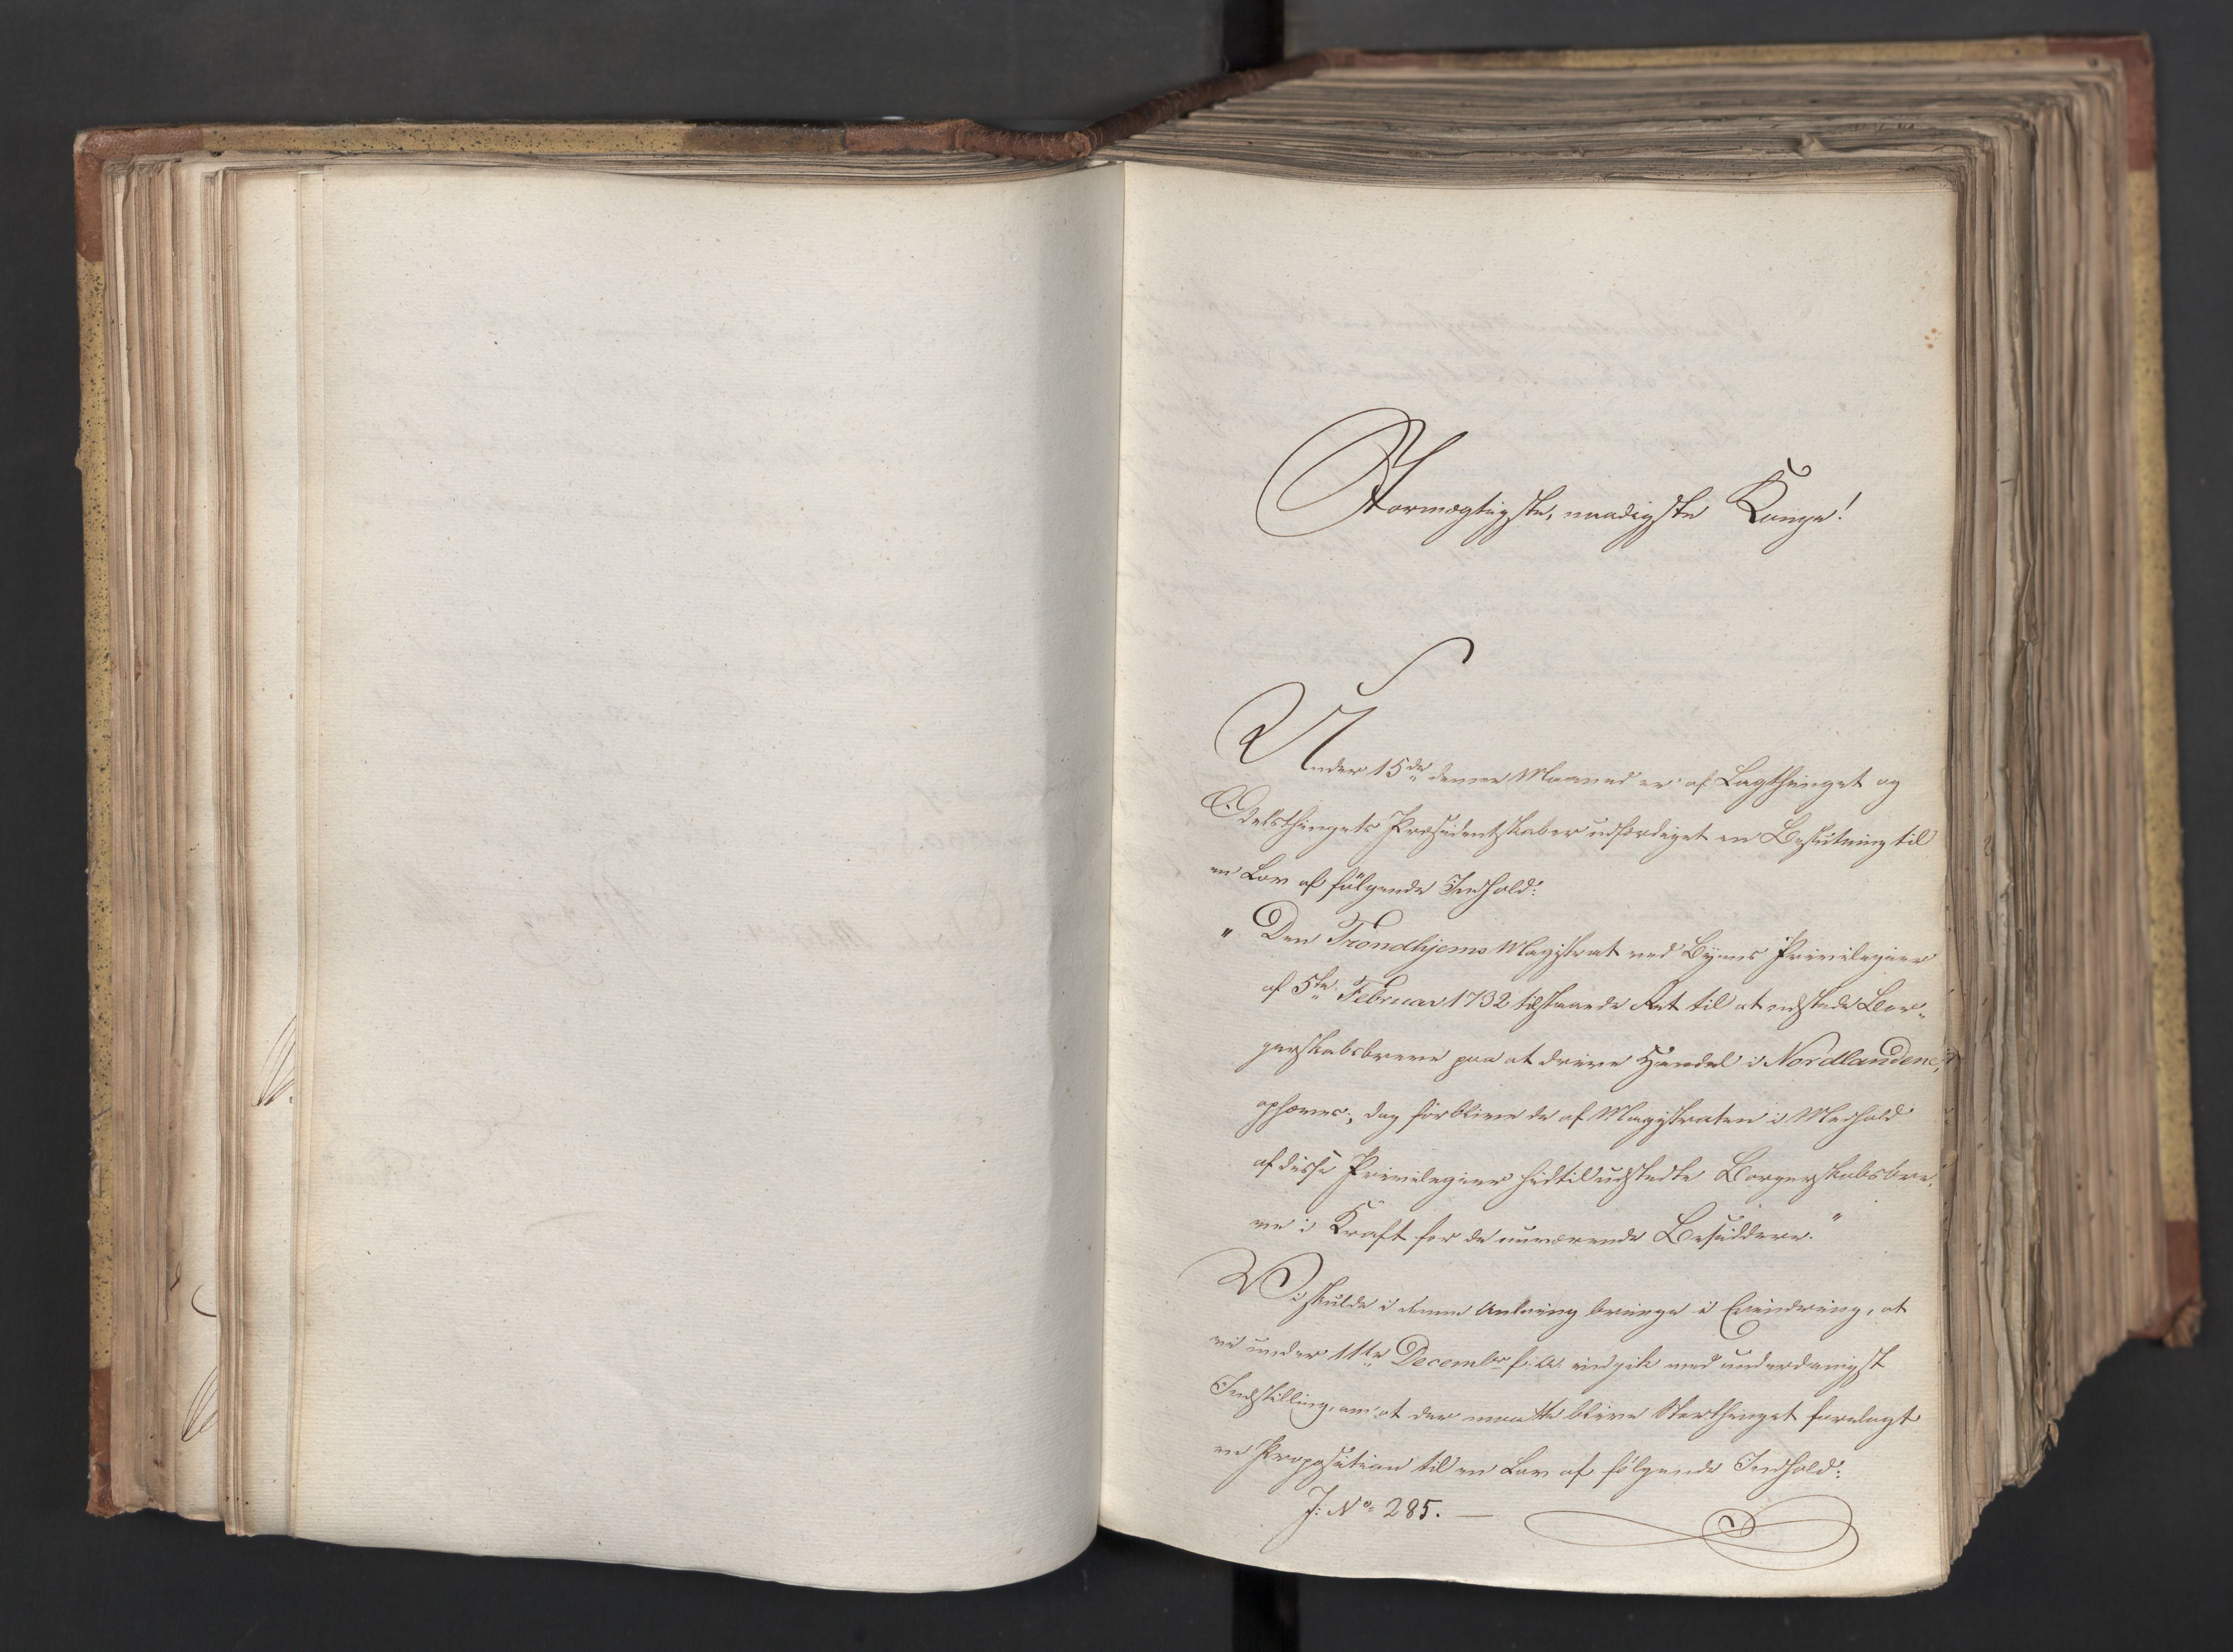 Stormægtigste, naadigste Konge!
Under 15de denne Maaned er af Lagthinget og
Odelsthingets Præsidentskaber udfærdiget en Beslutning til
en Lov af følgende Indhold:
„Den Trondhjems Magistrat ved Byens Privilegier
af 5te Februar 1732 tilstaaede Ret til at udstede Bor-
gerskabsbreve paa at drive Handel i Nordlandene,
ophæves; dog forblive de af Magistraten i Medhold
af disse Privilegier hidtil udstedte Borgerskabsbre-
ve i Kraft for de nuværende Besiddere."
Vi skulde i denne Anledning bringe i Erindring, at
vi under 11te Decembr f. A. indgik med underdanigst
Indstilling, om at der maatte blive Storthinget forelagt
en Proposition til en Lov af følgende Indhold:
J: No 285. —